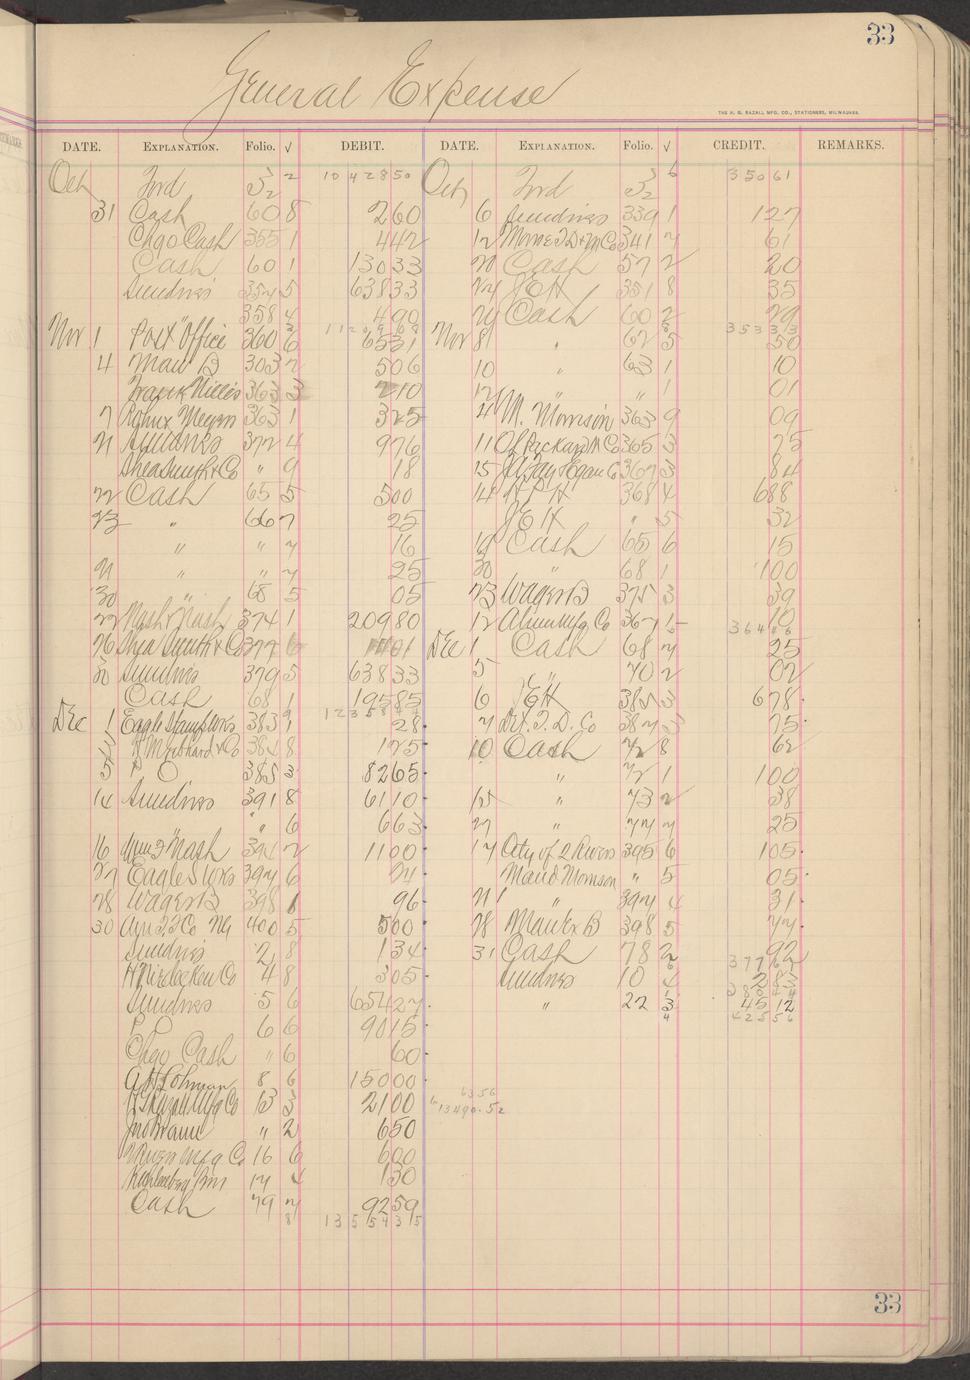 33
General Expense
THE H. G. RAZALL MFG. CO., STATIONERS, MILWAUKEE.
DATE. EXPLANATION. Folio. √ DEBIT. DATE. EXPLANATION. Folio. √ CREDIT. REMARKS.
Oct Ford 32 2 1042850 Oct Ford 32 6 35061
31 Cash 60 8 260 6 Sundries 339 1 127
Chgo Cash 355 1 442 12 341 7 61
Cash 60 1 13033 20 Cash 57 2 20
Sundries 354 5 63833 24 JEH 351 8 35
" 358 4 490 29 Cash 60 2 29
35333
Nov 1 Post Office 360 6 6531 Nov 8 " 62 5 50
4 Maud B 303 2 506 10 " 63 1 10
Frank Millis 363 3 210 12 " " 1 01
7 Meyers 363 1 325 4 M. Morrison 363 9 09
21 Sundries 372 4 976 11 O L Packard M Co 365 3 75
Shea Smith & Co " 9 18 15 J A Fay & Egan Co 367 3 84
22 Cash 65 5 500 14 H P H 368 4 688
23 " 66 7 25 JEH " 5 32
" " 7 16 19 Cash 65 6 15
21 " " 7 25 30 " 68 1 100
30 " 68 5 05 23 Wager B 375 3 39
22 Nash & Nash 374 1 20980 12 Alum Mfg. Co 367 5 10
26 Shea Smith & Co 377 6 01 Dec 1 Cash 68 7 25
30 Sundries 379 5 63833 5 " 70 2 02
Cash 68 1 19585 6 JEH 385 3 678
Dec 1 Eagle Stamp Wks 383 1 28 7 Det. T. D. Co 387 3 75
384 8 125 10 Cash 72 8 62
5 P O 385 3 8265 " 72 1 100
14 Sundries 391 8 6110 15 " 73 2 38
" " 6 663 27 " 77 7 25
16 Wm F Nash 394 2 1100 17 City of 2 Rivers 395 6 105
27 Eagle S Wks 397 6 21 Maud Morrison " 5 05
28 Wager B 398 8 96 21 " 397 4 31
30 400 5 500 28 Maud Ex B 398 5 77
Sundries 2 8 134 31 Cash 78 2 92
H Niedecken Co 4 8 305 Sundries 10 4 283
Sundries 5 6 65427 " 22 3 4512
42556
P O 6 6 9015
Chgo Cash " 6 60
A H Lohman 8 6 15000
6356
H G Razall Mfg Co 13 3 2100
13490.52
Jno Braun " 2 650
2 Rivers Mfg Co 16 6 600
17 4 130
Cash 79 7 9259
8 1355435
33